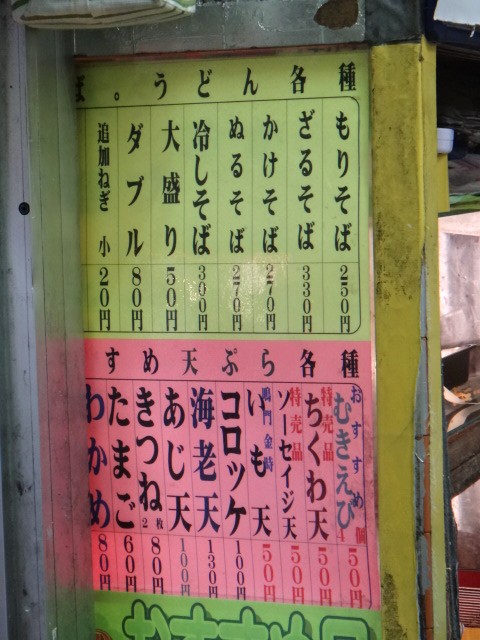 種各んどう。ば
もりそば 250円
ざるそば 330円
かけそば 270円
ぬるそば 270円
冷しそば 300円
大盛り 50円
ダブル 80円
追加ねぎ 小 20円
種各らぷ天めす
おすすめ むきえび 4個 50円
特売品 ちくわ天 50円
特売品 ソーセイジ天 50円
鳴門金時 いも天 50円
コロッケ 100円
海老天 130円
あじ天 100円
きつね 2枚 80円
たまご 60円
わかめ 80円